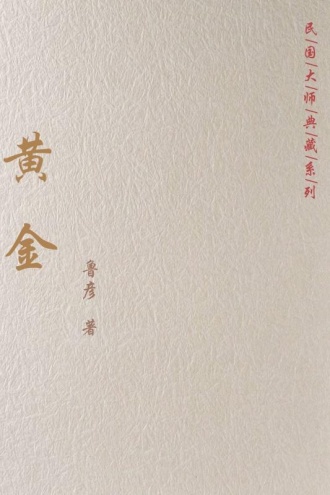 民|国|大|师|典|藏|系|列
黄金
鲁彦 著